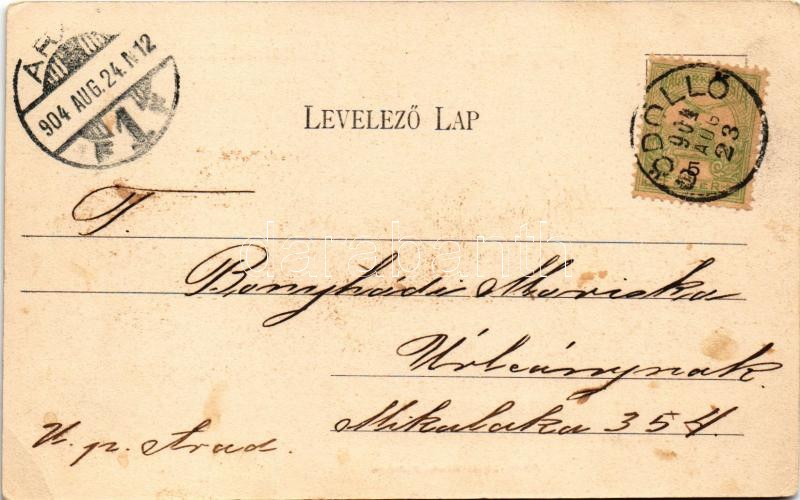 AR
904 AUG. 24. N 12
F 1
LEVELEZŐ LAP
GÖDÖLLŐ
904 AUG 23
5
T.
Bonyhádi Mariska
Úrleánynak.
Mikalaka 354.
U. p. Arad.
darabanth